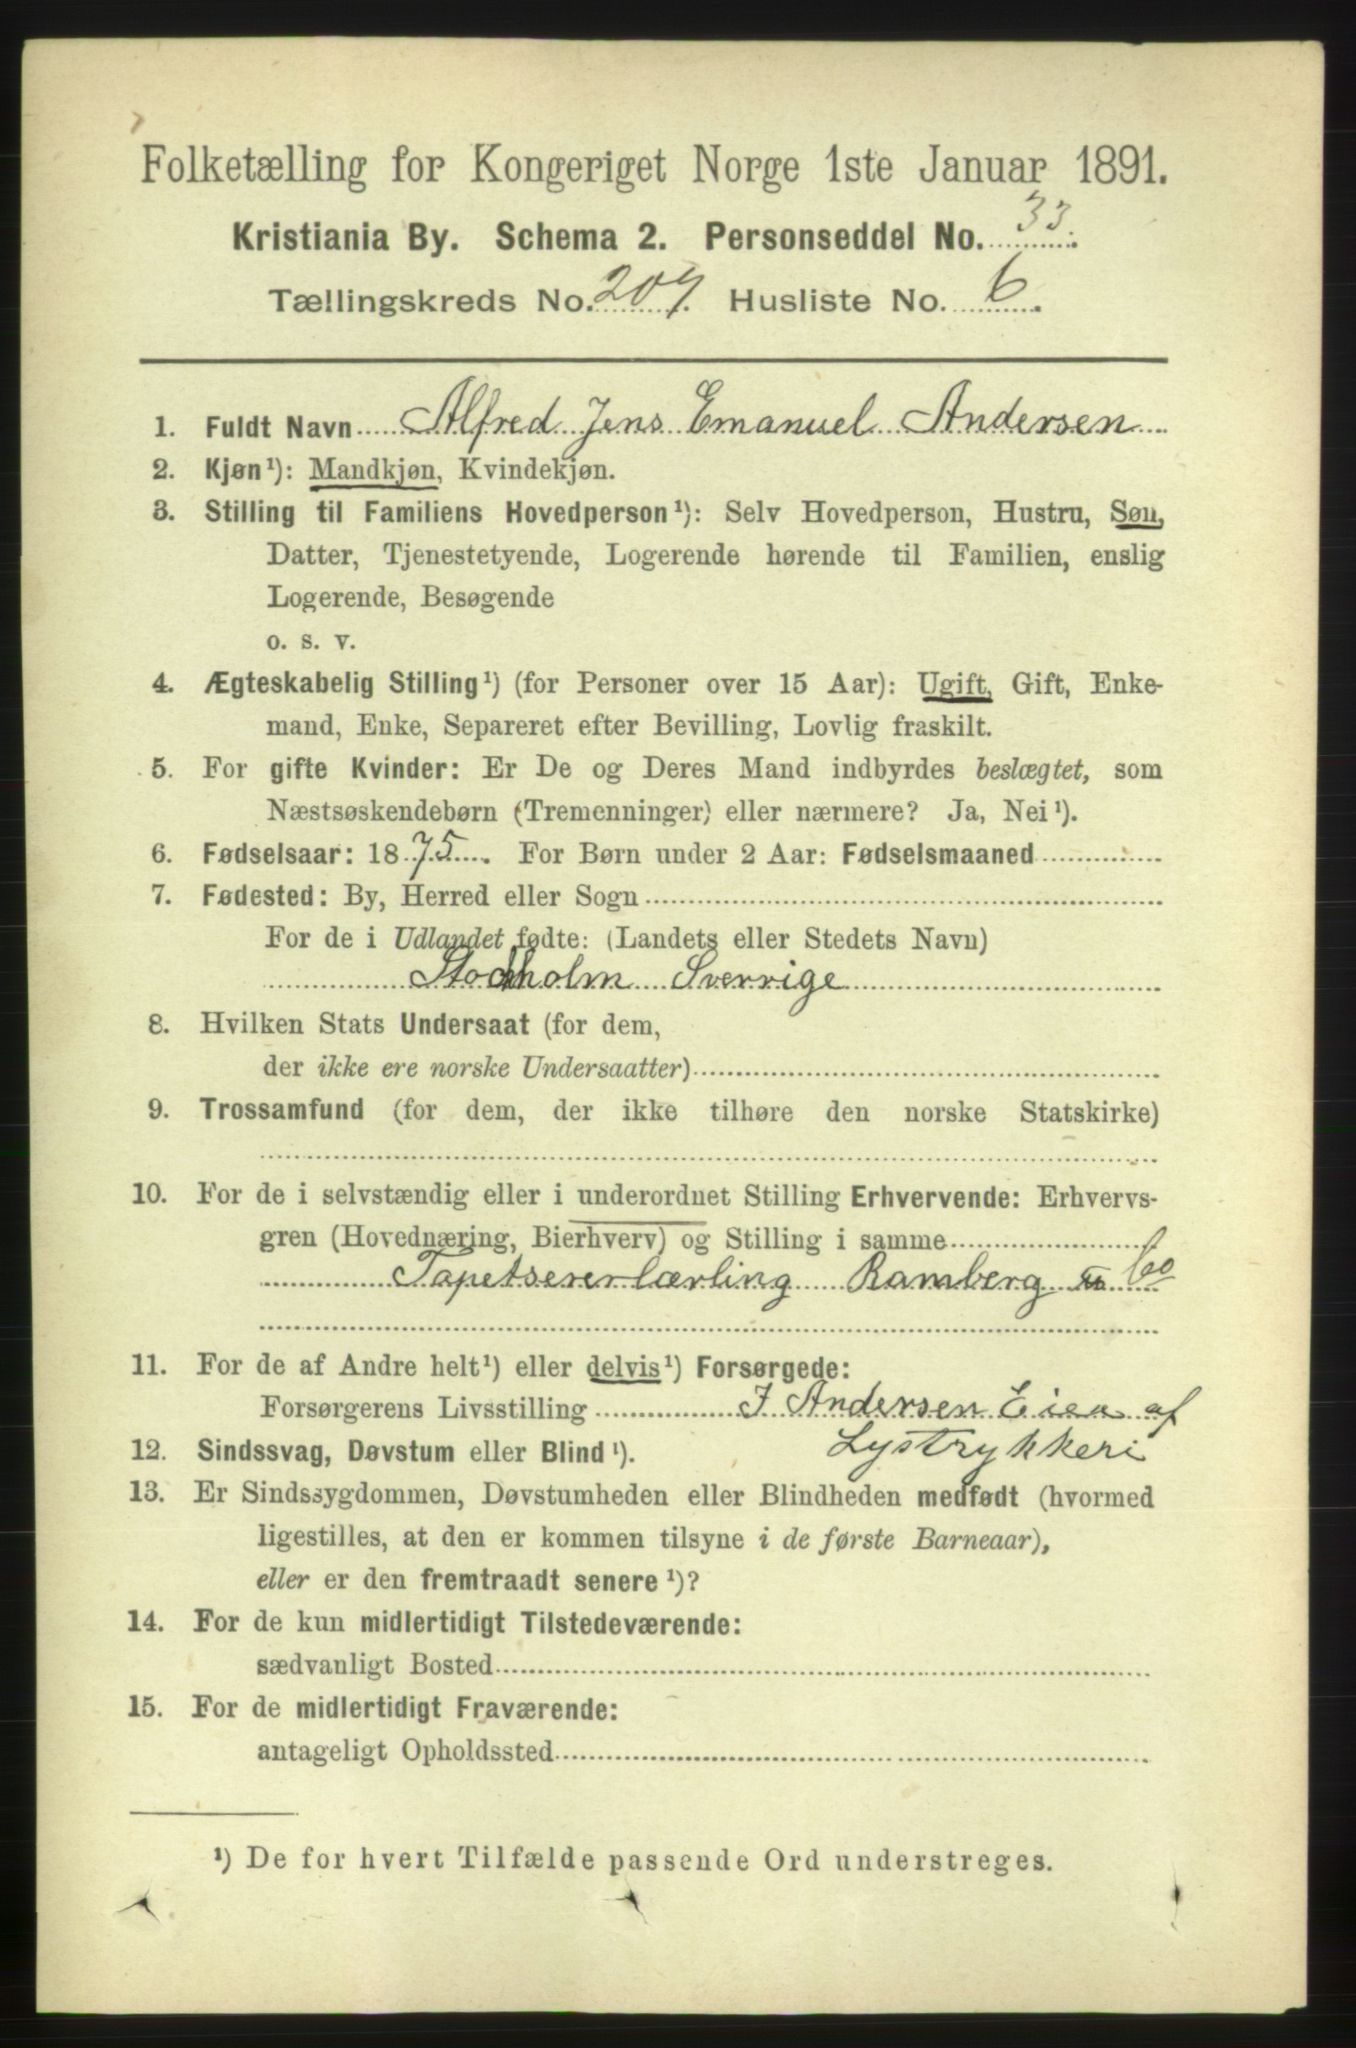 Folketælling for Kongeriget Norge 1ste Januar 1891.
Kristiania By. Schema 2. Personseddel No. 33.
Tællingskreds No. 207. Husliste No. 6.
1. Fuldt Navn Alfred Jens Emanuel Andersen
2. Kjøn¹): Mandkjøn, Kvindekjøn.
3. Stilling til Familiens Hovedperson¹): Selv Hovedperson, Hustru, Søn,
Datter, Tjenestetyende, Logerende hørende til Familien, enslig
Logerende, Besøgende
o. s. v.
4. Ægteskabelig Stilling¹) (for Personer over 15 Aar): Ugift, Gift, Enke-
mand, Enke, Separeret efter Bevilling, Lovlig fraskilt.
5. For gifte Kvinder: Er De og Deres Mand indbyrdes beslægtet, som
Næstsøskendebørn (Tremenninger) eller nærmere? Ja, Nei¹).
6. Fødselsaar: 1875. For Børn under 2 Aar: Fødselsmaaned
7. Fødested: By, Herred eller Sogn
For de i Udlandet fødte: (Landets eller Stedets Navn)
Stockholm Sverrige
8. Hvilken Stats Undersaat (for dem,
der ikke ere norske Undersaatter)
9. Trossamfund (for dem, der ikke tilhøre den norske Statskirke)
10. For de i selvstændig eller i underordnet Stilling Erhvervende: Erhvervs-
gren (Hovednæring, Bierhverv) og Stilling i samme
Tapetsererlærling Ramberg & Co
11. For de af Andre helt¹) eller delvis¹) Forsørgede:
Forsørgerens Livsstilling J Andersen Eier af
Lystrykkeri
12. Sindssvag, Døvstum eller Blind¹).
13. Er Sindssygdommen, Døvstumheden eller Blindheden medfødt (hvormed
ligestilles, at den er kommen tilsyne i de første Barneaar),
eller er den fremtraadt senere¹)?
14. For de kun midlertidigt Tilstedeværende:
sædvanligt Bosted
15. For de midlertidigt Fraværende:
antageligt Opholdssted
¹) De for hvert Tilfælde passende Ord understreges.